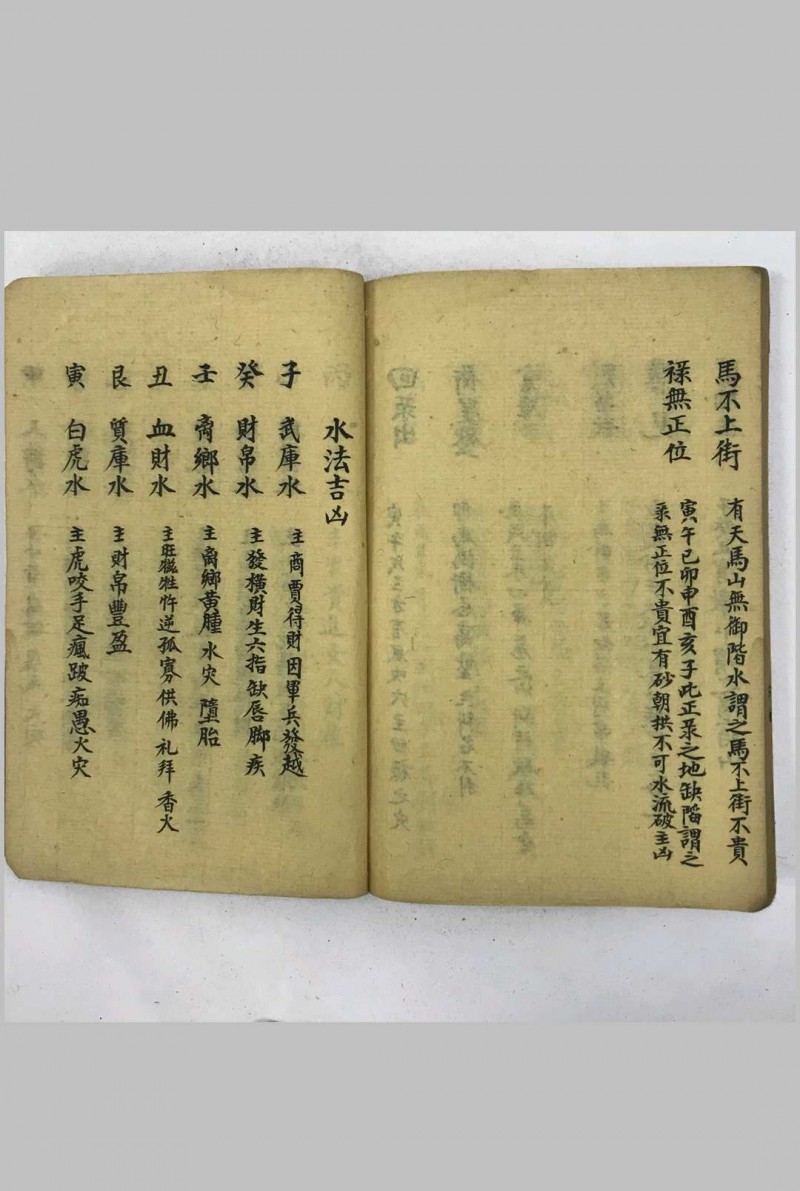 馬不上街 有天馬山無御階水謂之馬不上街不貴
祿無正位 寅午巳卯申酉亥子此正彔之地缺陷謂之
彔無正位不貴宜有砂朝拱不可水流破主凶
水法吉凶
子 武庫水 主商賈得財因軍兵發越
癸 財帛水 主發橫財生六指缺唇脚疾
壬 离鄉水 主离鄉黃腫水灾墮胎
丑 血財水 主旺犠牲忤逆孤寡供佛礼拜香火
艮 質庫水 主財帛豐盈
寅 白虎水 主虎咬手足瘋跛痴愚火灾